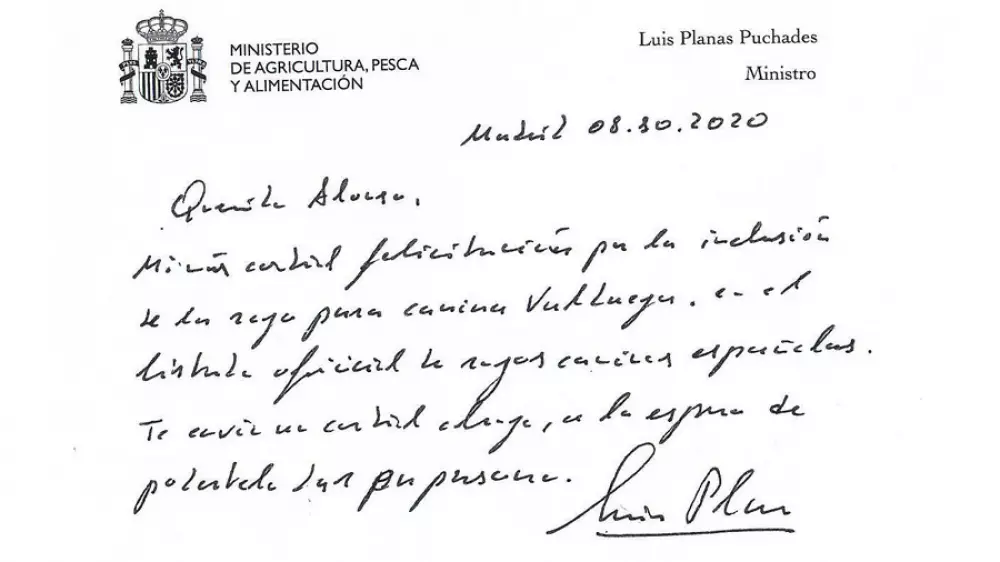 MINISTERIO
DE AGRICULTURA, PESCA
Y ALIMENTACIÓN
Luis Planas Puchades
Ministro
Madrid 08.10.2020
Querido Alonso,
Mi más cordial felicitación por la inclusión
de la raza pura canina Valhuega, en el
listado oficial de razas caninas españolas.
Te envío un cordial abrazo, a la espera de
podértelo dar en persona.
Luis Planas